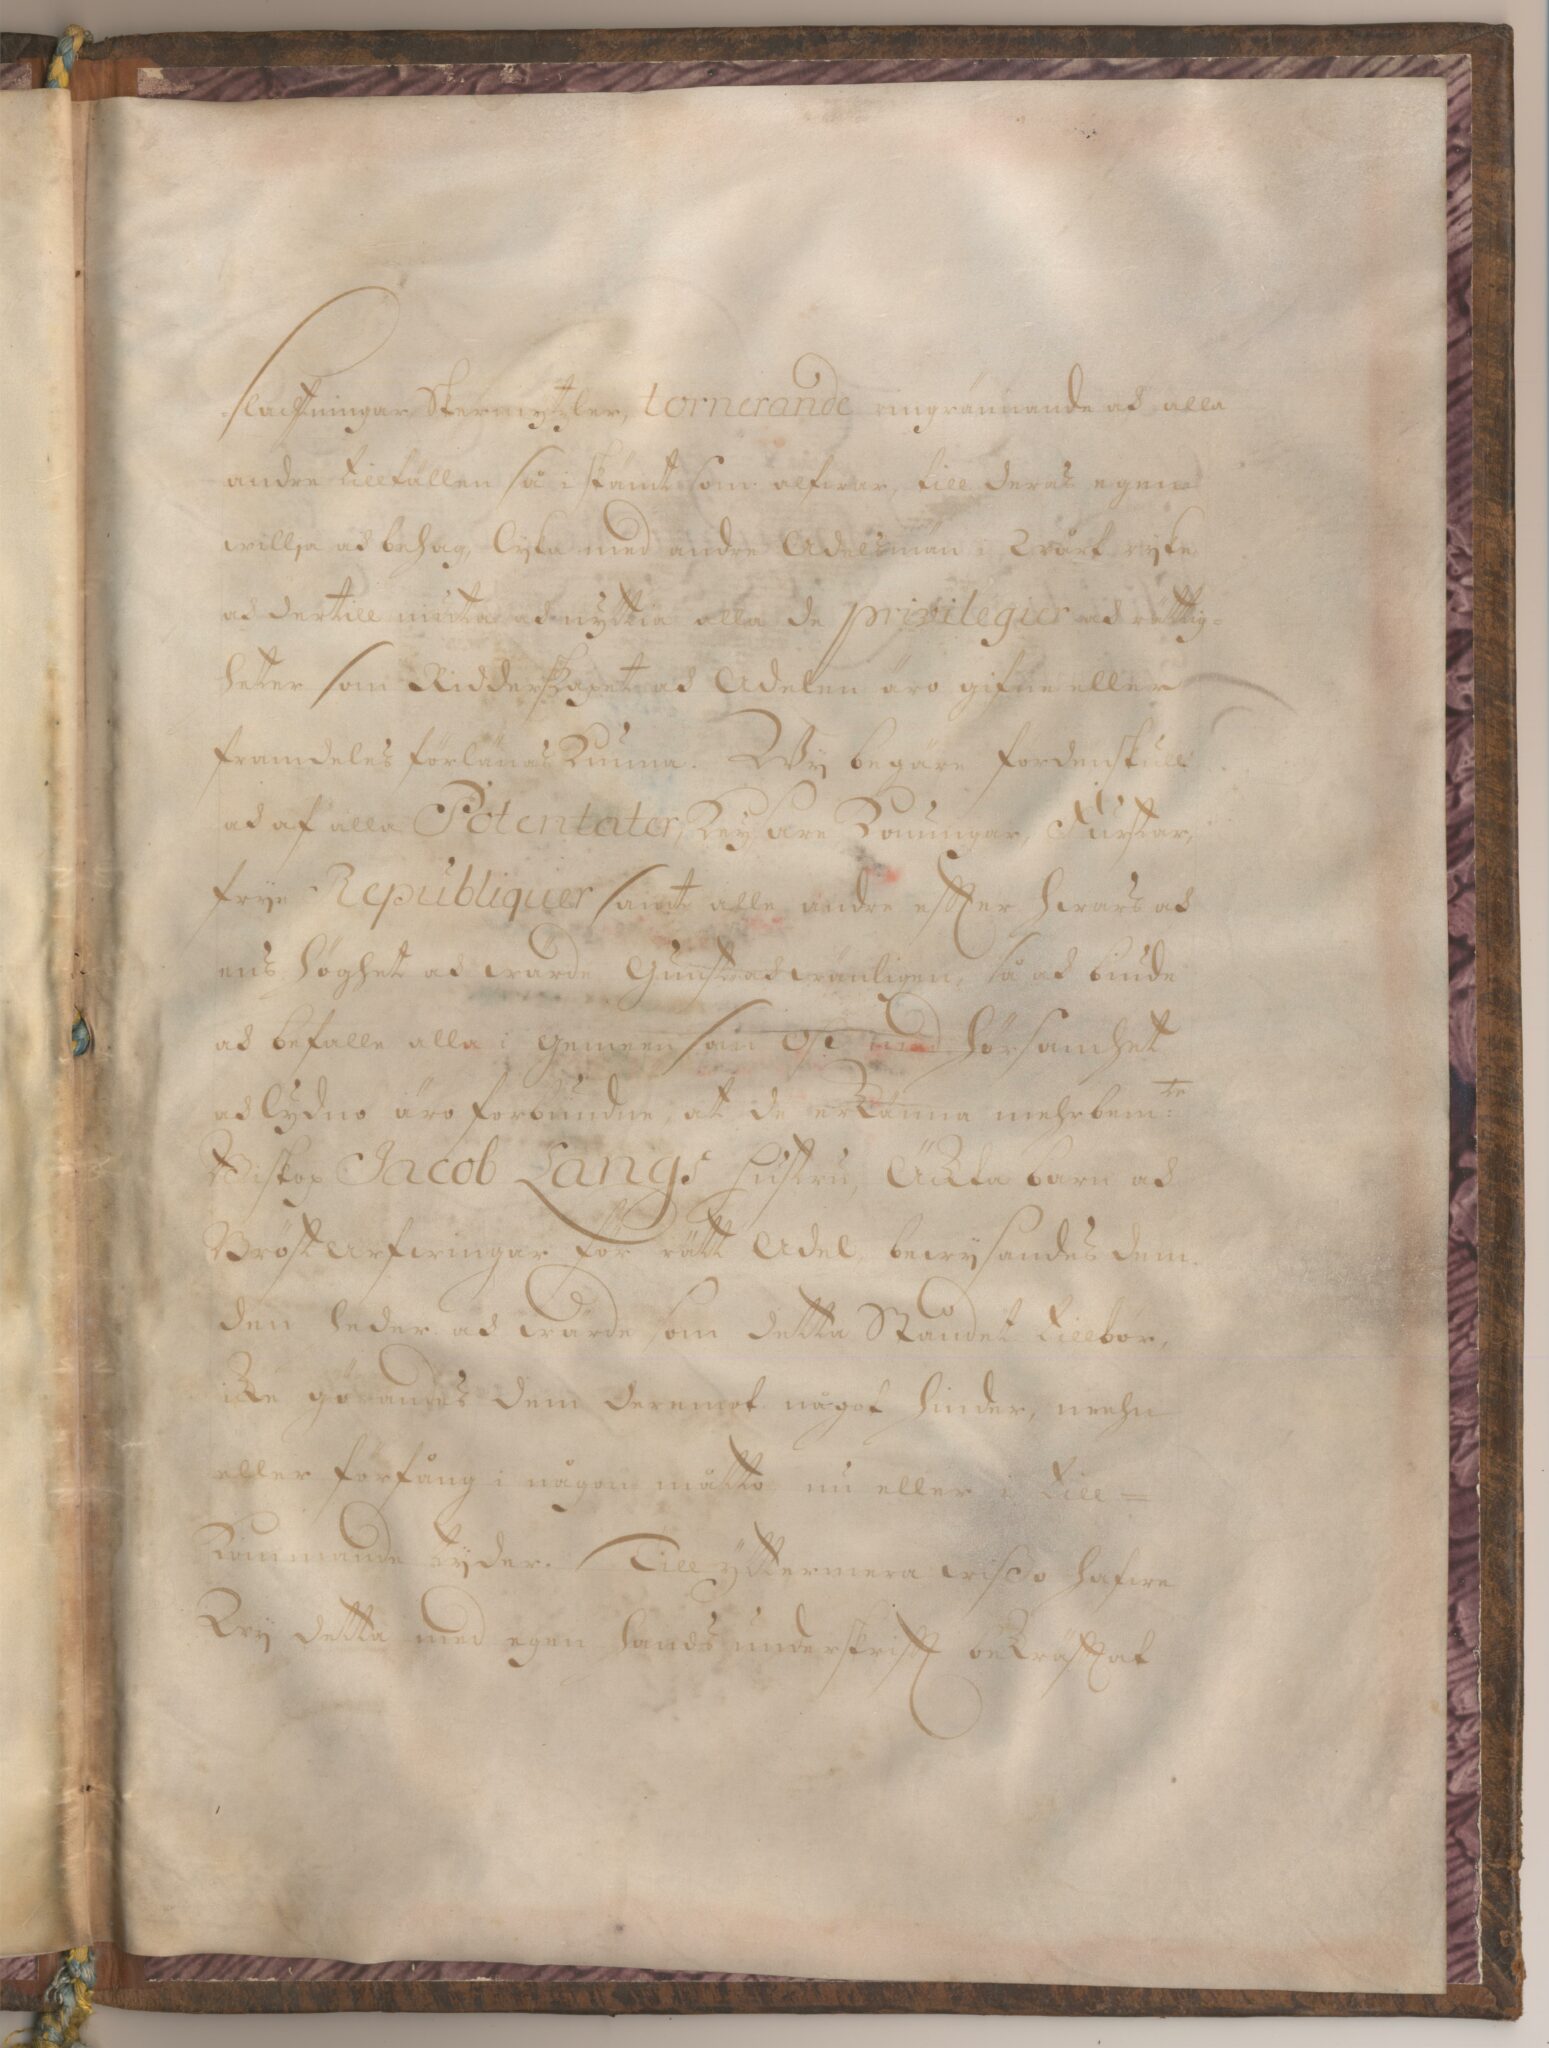 slachtningar, Skermytzler, tornerande ringrännande och alla
andre tillfällen så i skämt som alfwar, till deras egen
willja och behag, lijka med andre Adelsmän i Wårt rijke
och dertill niuta och nyttia alla de privilegier och rättig-
heter som Ridderskapet och Adelen äro gifne eller
framdeles förlänas kunna. Wij begäre fordenskull
och af alla Potentater, Keysare Konungar, Furstar,
frye Republiquer samt alle andre effter hwars och
ens höghet och wärde Gunst och wänligen, så och biude
och befalle alla i gemeen som Oss med hörsamhet
och lydno äro förbundne, at de erkänna mehrbem:te
Biskop Jacob Langs hustru, Ächta barn och
Bröst Arfwingar för rätt Adel, bewysandes dem
den heder och wärde som detta Ståndet tillbör,
icke görandes dem deremot något hinder, meehn
eller förfång i någon måtto nu eller i till-
kommande tyder. Till yttermera wisso hafwe
Wy detta med egen hands underskrifft bekräfftat